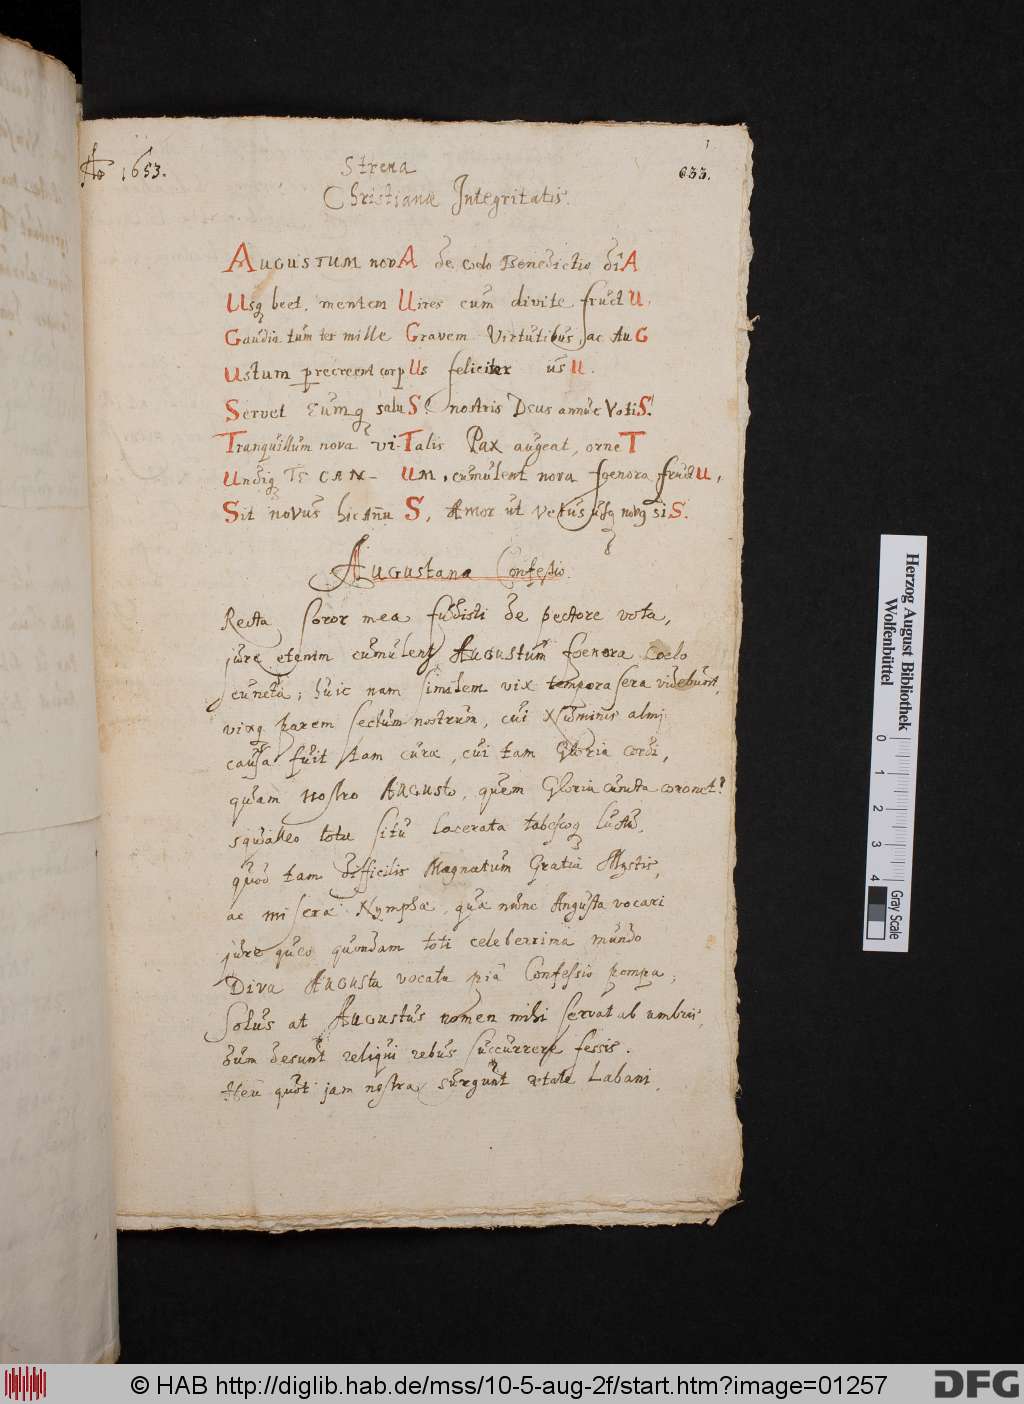 Ao 1653.
Strena
633.
Christianæ Integritatis.
AUGUSTUM novA de cœlo Benedictio dîA
Usq beet, mentem Uires cum divite fructU.
Gaudia tum ter mille Gravem Virtutibus, ac AuG
Ustum precreent corpUs feliciter usU.
Servet Eumq saluS! nostris Deus annue VotiS!
Tranquillum nova vi-Talis Pax augeat, orneT
Undiq TE CAN- UM, cumulent nova fœnora fructU,
Sit novus hic Annu S, Amor ut vetus usq novq siS.
Augustana Confessio.
Recta soror mea fudisti de pectore vota,
jure etenim cumulent Augustum fœnora Cœlo
cuncta; huic nam similem vix tempora sera videbunt,
vixq parem sectum nostrum, cui Numinis almi
causa fuit tam curæ, cui tam Gloria cordi,
quam nostro Augusto, quem Gloria cuncta coronet!
squalleo tota situ lacerata tabescoq luctu,
quod tam difficilis Magnatum Gratia Mystis,
ac misera Nympha, quæ nunc Angusta vocari
jure queo quondam toti celeberrima mundo
Diva Augusta vocata piâ Confessio pompa;
Solus at Augustus nomen mihi servat ab umbris,
dum desunt reliqui rebus succurrere fessis.
Heu quot jam nostra surgunt ætate Labani,
Herzog August Bibliothek
Wolfenbüttel
0 1 2 3 4
Gray Scale
© HAB http://diglib.hab.de/mss/10-5-aug-2f/start.htm?image=01257
DFG